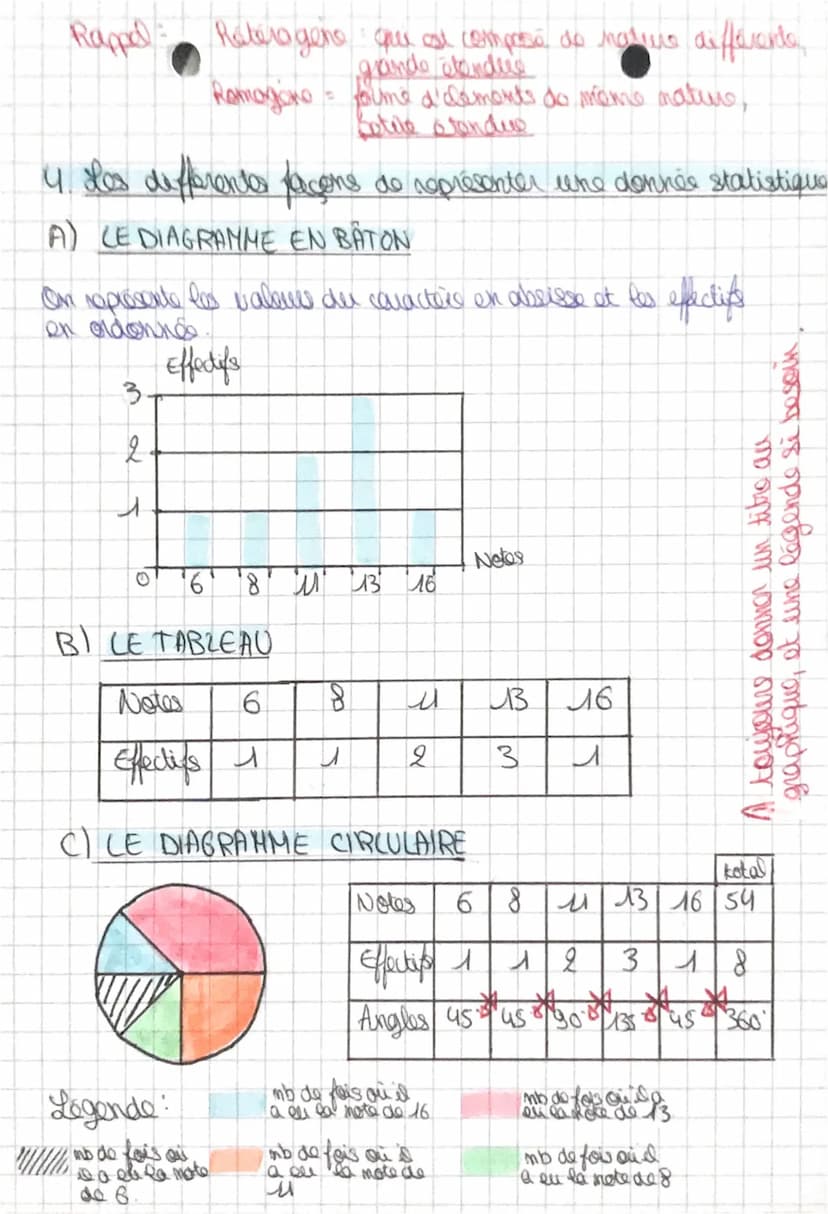 Rappel : Hétérogène : qui est composé de nature différente,
grande étendue
Homogène = formé d'éléments de même nature,
petite étendue
4. Les différentes façons de représenter une donnée statistique
A) LE DIAGRAMME EN BÂTON
On représente les valeurs du caractère en abscisse et les effectifs
en ordonnée.
Effectifs
3
2
1
0 6 8 11 13 16 Notes
⚠ toujours donner un titre au
graphique, et une légende si besoin.
B) LE TABLEAU
Notes 6 8 11 13 16
Effectifs 1 1 2 3 1
C) LE DIAGRAMME CIRCULAIRE
total
Notes 6 8 11 13 16 54
Effectif 1 1 2 3 1 8
Angles 45° 45° 90° 135 45 360°
Légende :
nb de fois où il
a eu la note de 16
nb de fois où il a
eu la note de 13
nb de fois où
il a eu la note
de 6.
nb de fois où il
a eu la note de
11
nb de fois où il
a eu la note de 8